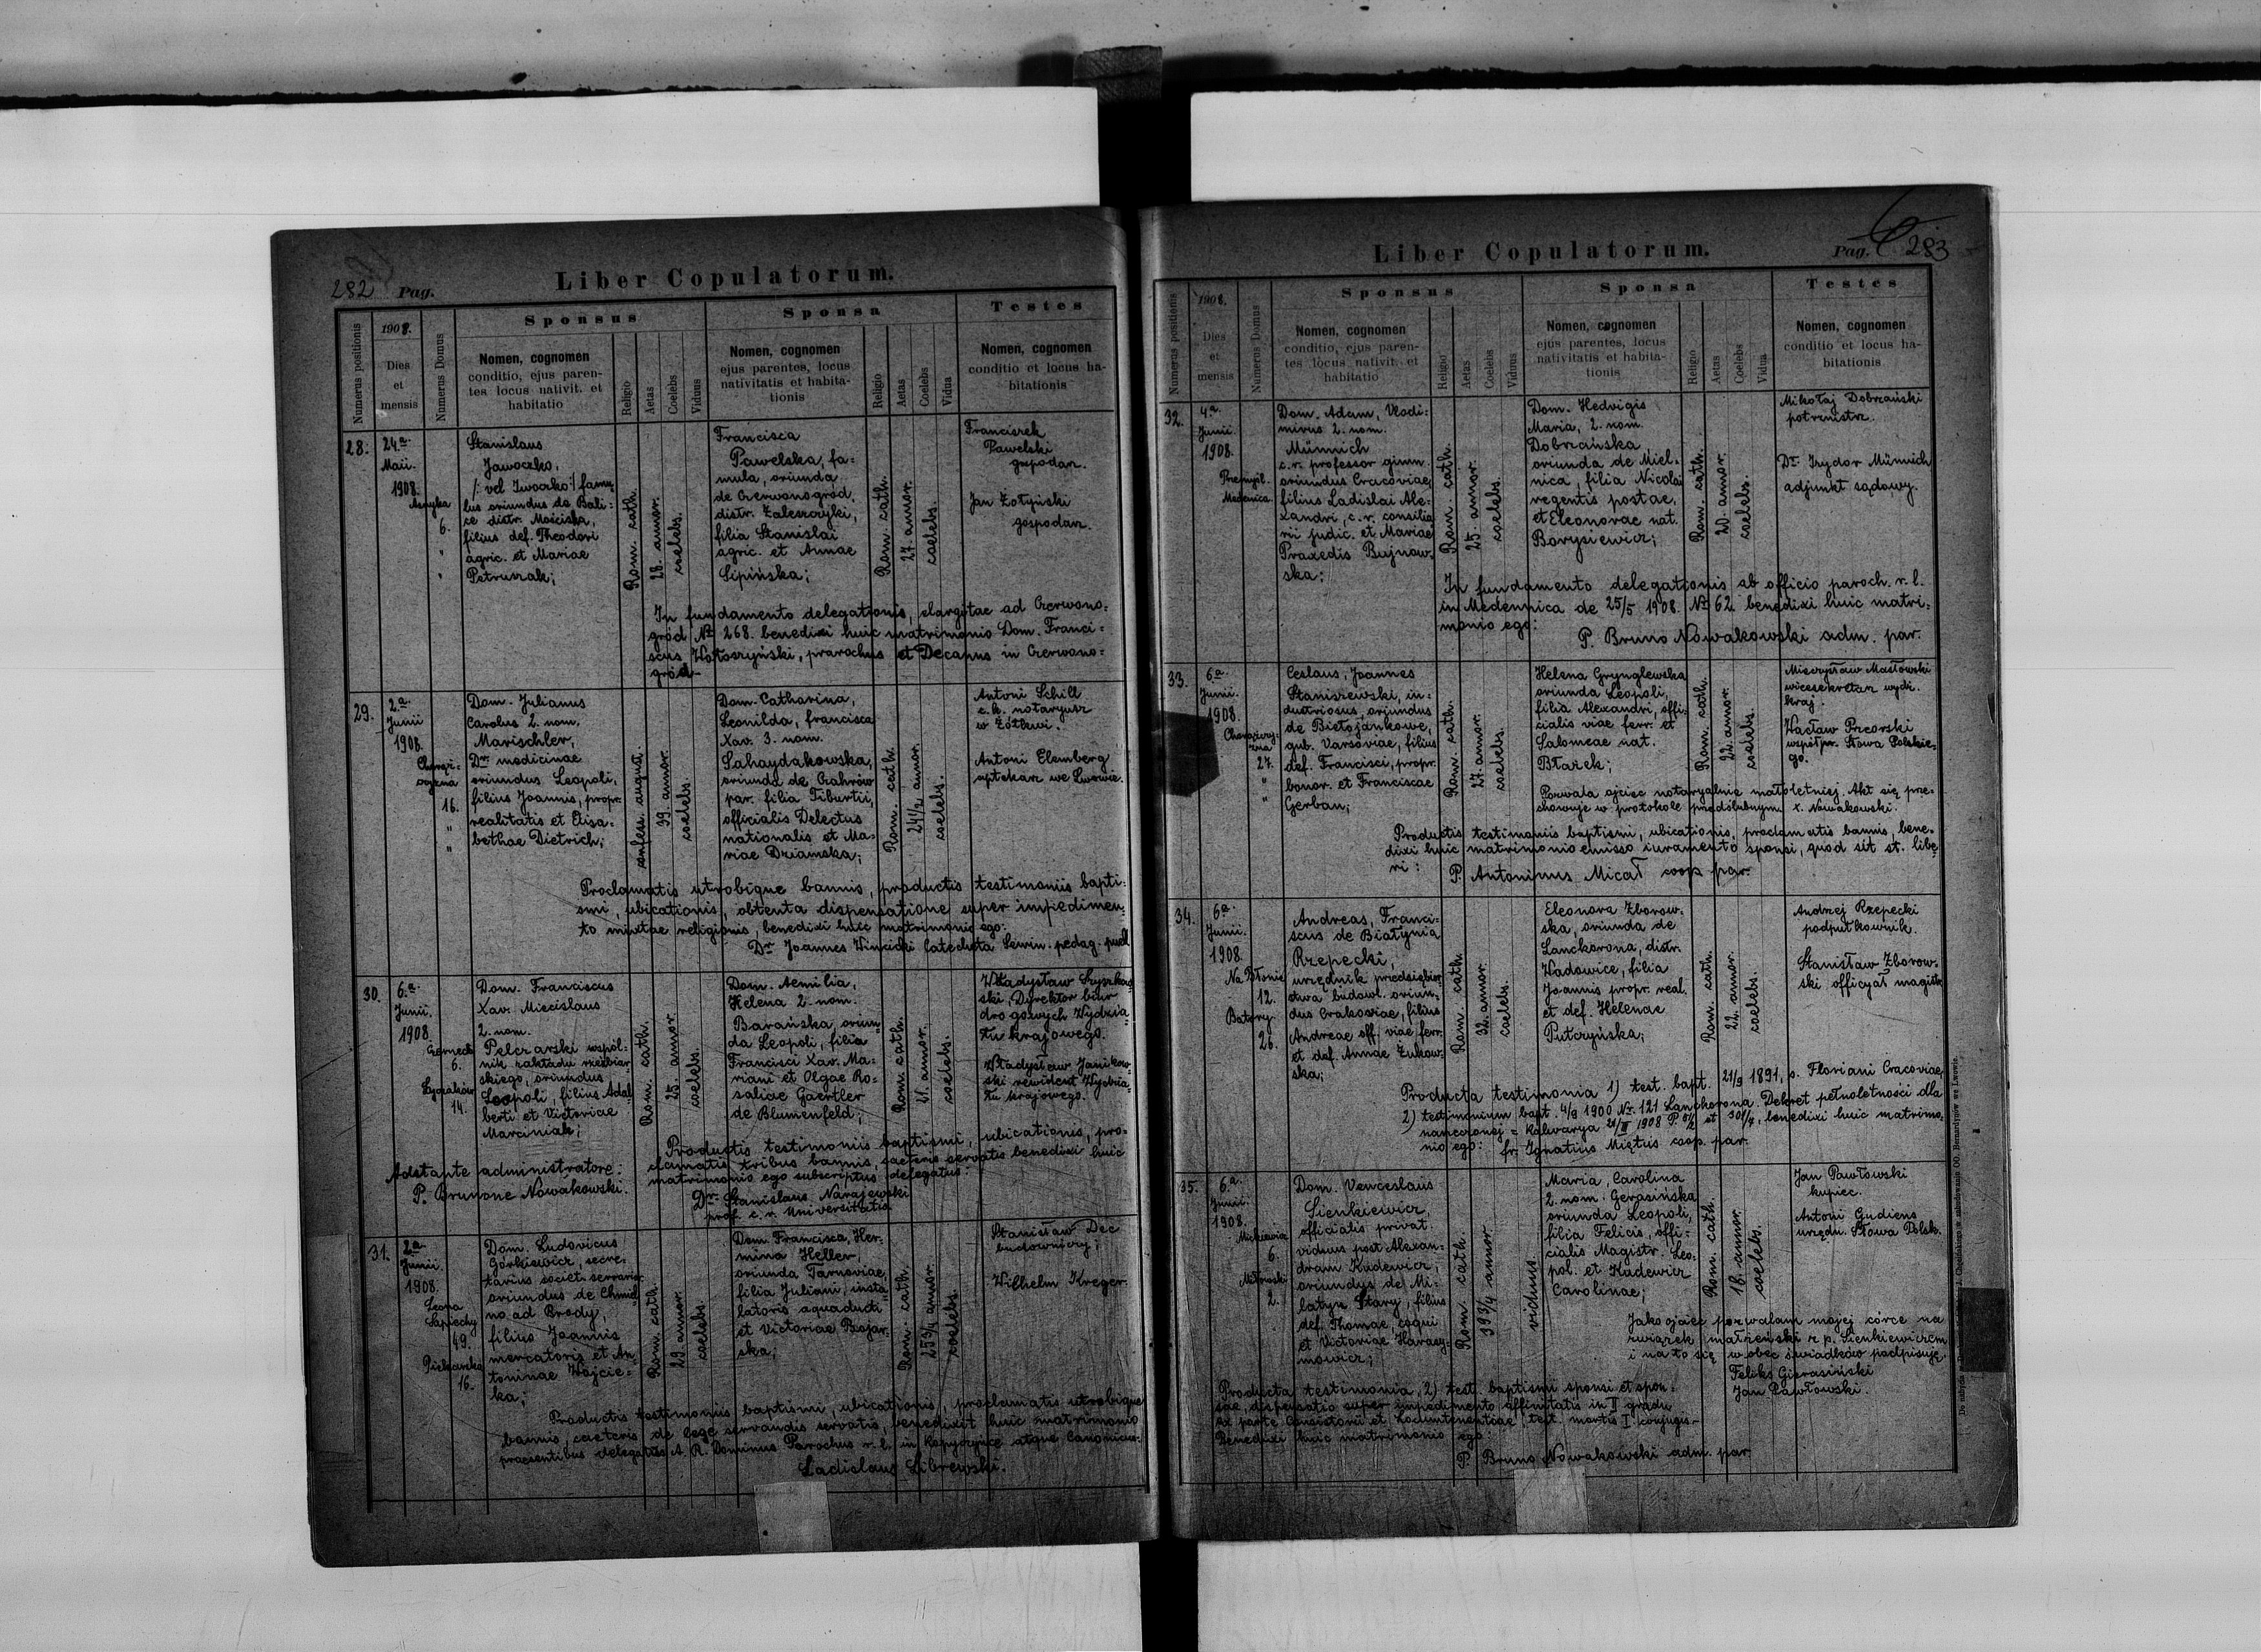 282 Pag.
Liber Copulatorum.
Numerus positionis
1908.
Dies
et
mensis
Numerus Domus
Sponsus
Nomen, cognomen
conditio, ejus paren-
tes locus nativit. et
habitatio
Religio
Aetas
Coelebs
Viduus
Sponsa
Nomen, cognomen
ejus parentes, locus
nativitatis et habita-
tionis
Religio
Aetas
Coelebs
Vidua
Testes
Nomen, cognomen
conditio et locus ha-
bitationis
28.
24a
Maii.
1908.
6.
Stanislaus
Jaworzko,
/: vel Iworzko :/ famu
lus oriundus de Bali:
ce distr. Mościska,
filius def. Theodori
agric. et Mariae
Petruszak;
Rom. cath.
28. annor.
coelebs.
Francisca
Pawelska, fa:
mula, oriunda
de Czerwonogród,
distr. Zaleszczyki,
filia Stanislai
agric. et Annae
Lipińska;
Rom. cath.
27. annor.
coelebs.
Franciszek
Pawelski
gospodarz.
Jan Zołyński
gospodarz.
In fundamento delegationis, elargitae ad Czerwono:
gród No 268. benedixi huic matrimonio Dom. Franci:
scus Wołoszyński, prarochus et Decanus in Czerwono:
gród
29.
2.a
Junii
1908.
Chorąż:
czyzna
16.
Dom. Julianus
Carolus 2. nom.
Marischler,
Dr medicinae
oriundus Leopoli,
filius Joannis, propr.
realitatis et Elisa:
bethae Dietrich;
confess. august.
39. annor.
coelebs.
Dom. Catharina,
Leonilda, Francisca
Xav. 3. nom.
Sahaydakowska,
oriunda de Czahrów
par. filia Tiburtii,
officialis Delectus
nationalis et Ma:
riae Dziamska;
Rom. cath.
24 1/2 annor.
coelebs.
Antoni Schill
c.k. notaryusz
w Żółkwi.
Antoni Elemberg
aptekarz we Lwowie.
Proclamatis utrobique bannis, productis testimoniis bapti:
smi, ubicationis, obtenta dispensatione super impedimen:
to mixtae religionis, benedixi huic matrimonio ego:
Dr Joannes Wincicki Catecheta Semin. pedag. puell
30.
6.a
Junii.
1908.
6.
Łyczaków
14.
Dom. Franciscus
Xav. Miecislaus
2. nom.
Pelczarski wspól:
nik zakładu rzeźbiar
skiego, oriundus
Leopoli, filius Adal
berti et Victoriae
Marciniak;
Rom. cath.
25. annor.
coelebs.
Dom. Aemilia,
Helena 2. nom.
Barańska, oriun
da Leopoli, filia
Francisci Xav. Ma:
riani et Olgae Ro:
saliae Gaertler
de Blumenfeld;
Rom. cath.
21. annor.
coelebs.
Władysław
ski, Dyrektor biur
drogowych Wydzia
łu krajowego.
Władysław Janikow
ski rewident Wydzia
łu krajowego.
Productis testimoniis baptismi, ubicationis, pro:
clamatis tribus bannis, caeteris servatis benedixi huic
matrimonio ego subscriptus delegatus:
Dr Stanislaus Narajewski
prof. c. r. Universitatis
Adstante administratore:
P. Brunone Nowakowski.
31.
2.a
Junii.
1908.
Leona
Sapiechy
49.
Piekarska
16.
Dom. Ludovicus
Górkiewicz, secre:
tarius societ. serraria
oriundus de Chmiel
no ad Brody,
filius Joannis
mercatoris et An
toninae Wójcic:
ka;
Rom. cath.
29. annor.
coelebs.
Dom. Francisca, Her:
mina Heller,
oriunda Tarnoviae,
filia Juliani, insta
latoris aquaducti
et Victoriae Bojar:
ska;
Rom. cath.
25 3/4 annor.
coelebs.
Stanisław Dec
budowniczy;
Wilhelm Kreger.
Productis testimoniis baptismi, ubicationis, proclamatis utrobique
bannis, caeteris de lege servandis servatis, benedixit huic matrimonio
praesentibus delegatus A. R. Dominus Parochus r. l. in Kopyczyńce atque Canonicus:
Ladislaus Librewski.
Liber Copulatorum.
Pag. 283
Numerus positionis
1908.
Dies
et
mensis
Numerus Domus
Sponsus
Nomen, cognomen
conditio, ejus paren-
tes locus nativit. et
habitatio
Religio
Aetas
Coelebs
Viduus
Sponsa
Nomen, cognomen
ejus parentes, locus
nativitatis et habita-
tionis
Religio
Aetas
Coelebs
Vidua
Testes
Nomen, cognomen
conditio et locus ha-
bitationis
32.
4.a
Junii.
1908.
Przemyśl.
Medenica.
Dom. Adam, Vlodi:
mirus 2. nom.
Münnich
c.r. professor gimn.
oriundus Cracoviae,
filius Ladislai Ale:
xandri, c. r. consilia
rii judic. et Mariae
Praxedis Bujnow:
ska;
Rom. cath.
25. annor.
coelebs.
Dom. Hedvigis
Maria, 2. nom.
Dobrzańska
oriunda de Miel:
nica, filia Nicolai
regentis postae,
et Eleonorae nat.
Borysiewicz;
Rom. cath.
20. annor.
coelebs.
Mikołaj Dobrzański
poczmistrz.
Dr Izydor Münnich
adjunkt sądowy.
In fundamento delegationis ab officio paroch. r. l.
in Medennica de 25/5 1908. No 62 benedixi huic matri:
monio ego:
P. Bruno Nowakowski adm. par.
33.
6.a
Junii.
1908.
Chorążczy:
zna
27.
Ceslaus, Joannes
Staniszewski, in:
dustriosus, oriundus
de Bietojankowe,
gub. Varsoviae, filius
def. Francisci, propr.
bonor. et Franciscae
Gerban;
Rom. cath.
27. annor.
coelebs.
Helena Grynglewska
oriunda Leopoli,
filia Alexandri, offi:
cialis viae ferr. et
Salomeae nat.
Błażek;
Rom. cath.
22. annor.
coelebs.
Mieczysław Masłowski
wicesekretarz wydz.
kraj.
Wacław Przeorski
współpr. Słowa Polskie:
go.
Pozwala ojciec notaryalnie małoletniej. Akt się prze:
chowuje w protokole przedślubnym x. Nowakowski.
Productis testimoniis baptismi, ubicationis, proclamatis bannis, bene:
dixi huic matrimonio emisso iuramento sponsi, quod sit st. libe
ri:
P. Antoninus Micał coop. par.
34.
6.a
Junii.
1908.
Na Błonie
12.
Batory
26.
Andreas, Franci:
scus de Białynia
Rzepecki,
urzędnik przedsiębior
stwa budowl. oriun:
dus Crakoviae, filius
Andreae off. viae ferr.
et def. Annae Żukow:
ska;
Rom. cath.
32. annor.
coelebs.
Eleonora Zborow:
ska, oriunda de
Lanckorona, distr.
Wadowice, filia
Joannis propr. real.
et def. Helenae
Putczyńska;
Rom. cath.
22. annor.
coelebs.
Andrzej Rzepecki
podpułkownik.
Stanisław Zborow:
ski officyał magistr.
Producta testimonia 1) test. bapt. 21/9 1891, s. Floriani Cracoviae,
2) testimonium bapt. 4/9 1900 No. 121 Lanckorona. Dekret pełnoletności dla
narzeczonej = Kalwarya 21/II 1908 et benedixi huic matrimo:
nio ego: fr. Ignatius Miętus coop. par.
35.
6.a
Junii.
1908.
Mickiewicza
6.
2.
Dom. Venceslaus
Sienkiewicz,
officialis privat.
viduus post Alexan:
dram Kudewicz,
oriundus de Mi:
latyn Stary, filius
def. Thomae, coqui
et Victoriae Harasy:
mowicz;
Rom. cath.
39 3/4 annor
viduus
Maria, Carolina
2. nom. Gerasińska
oriunda Leopoli,
filia Felicis, offi:
cialis Magistr. Leo:
pol. et Kudewicz
Carolinae;
Rom. cath.
18. annor.
coelebs.
Jan Pawłowski
kupiec.
Antoni Gudiens
urzędn. Słowa Polsk.
Jako ojciec pozwalam mojej córce na
związek małżeński z p. Sienkiewiczem
i na to się w obec świadków podpisuję.
Feliks Gierasiński
Jan Pawłowski.
Producta testimonia, 2) test. baptismi sponsi et spon:
sae, dispensatio super impedimento affinitatis in II gradu
ex parte Consistorii et Locumtenentiae, test. mortis I conjugis-
Benedixi huic matrimonio ego:
P. Bruno Nowakowski adm. par.